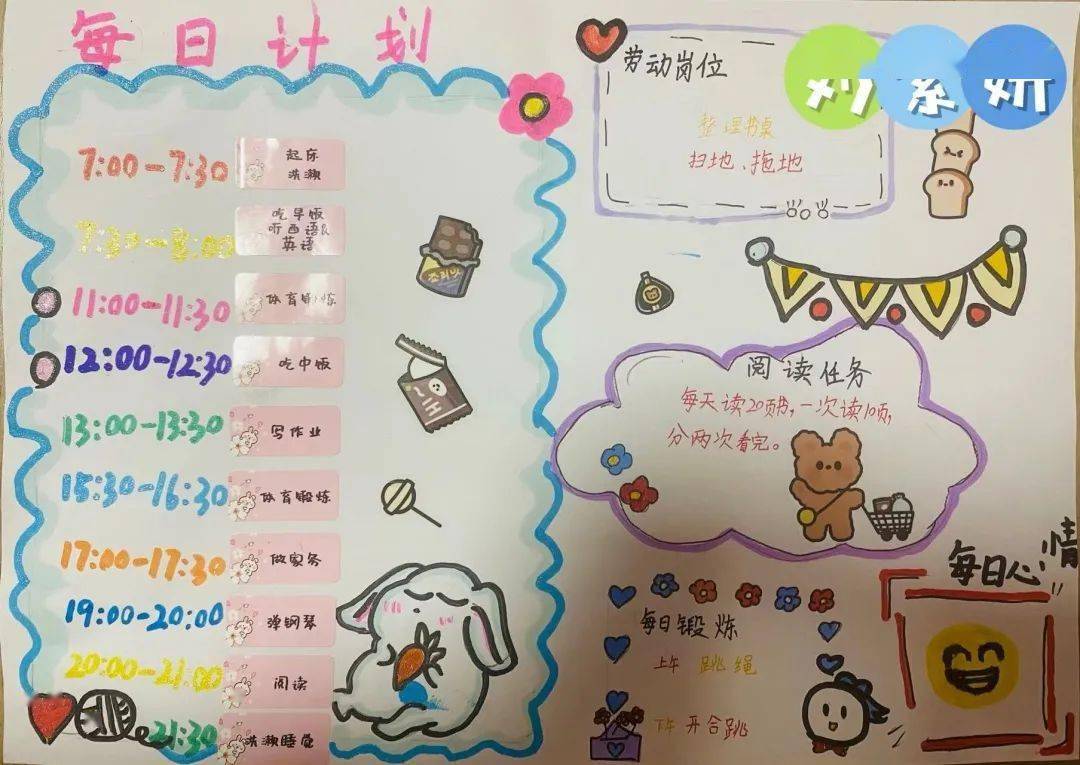 每日计划
7:00-7:30 起床
洗漱
7:30-8:00 吃早饭
听西语&
英语
11:00-11:30 体育锻炼
12:00-12:30 吃中饭
13:00-13:30 写作业
15:30-16:30 体育锻炼
17:00-17:30 做家务
19:00-20:00 弹钢琴
20:00-21:00 阅读
21:30 洗漱睡觉
劳动岗位
整理书桌
扫地、拖地
阅读任务
每天读20页书,一次读10页,
分两次看完。
每日心情
每日锻炼
上午 跳绳
下午 开合跳